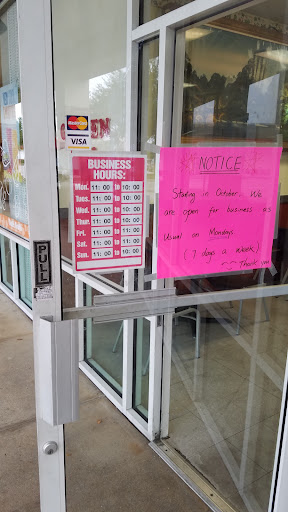 MasterCard
VISA
OPEN
BUSINESS
HOURS:
Mon. 11:00 to 10:00
Tues. 11:00 to 10:00
Wed. 11:00 to 10:00
Thu. 11:00 to 10:00
Fri. 11:00 to 10:00
Sat. 11:00 to 10:00
Sun. 11:00 to 10:00
NOTICE
Starting in October. We
are open for business as
Usual on Mondays.
(7 days a week)
Thank you
PULL